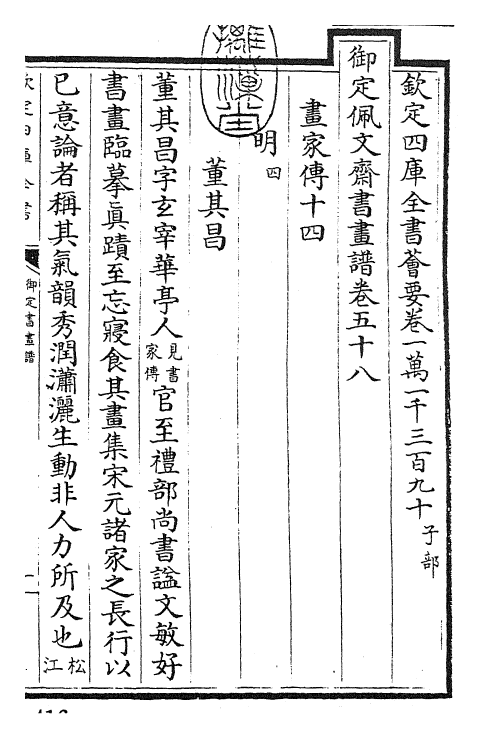 欽定四庫全書薈要卷一萬一千三百九十 子部
御定佩文齋書畫譜卷五十八
畫家傳十四
明 四
董其昌
董其昌字玄宰華亭人 見書家傳 官至禮部尚書諡文敏好
書畫臨摹眞蹟至忘寢食其畫集宋元諸家之長行以
已意論者稱其氣韻秀潤瀟灑生動非人力所及也 松江
御定書畫譜